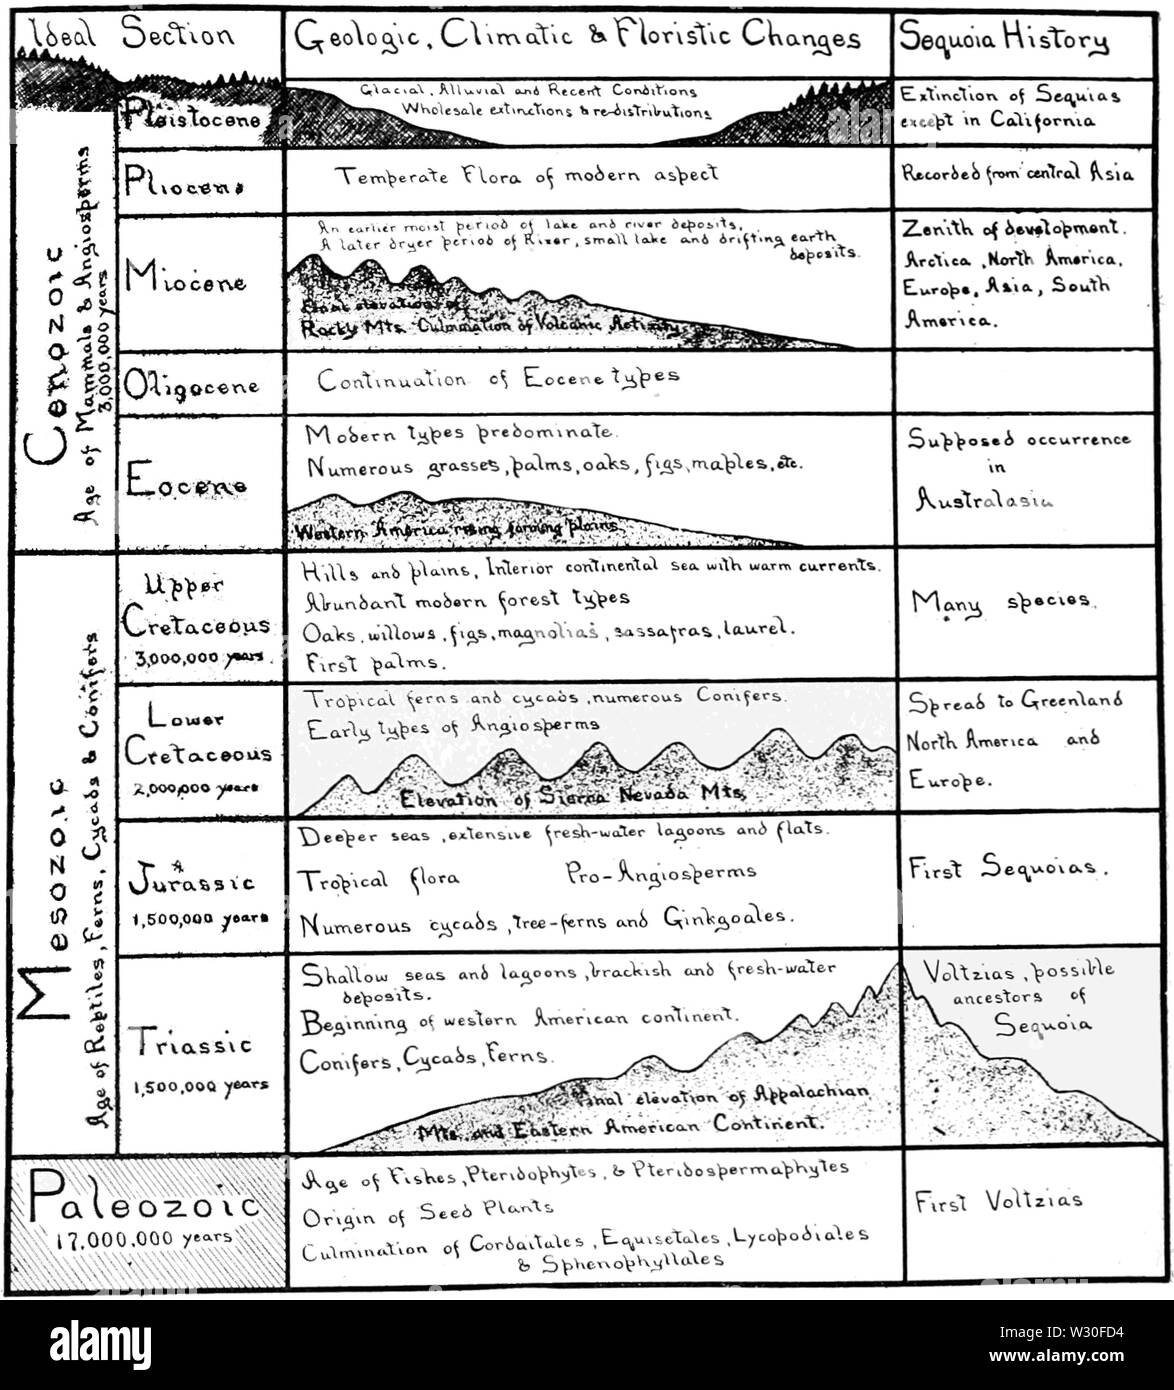 Ideal Section
Geologic, Climatic & Floristic Changes
Sequoia History
Pleistocene
Glacial, Alluvial and Recent Conditions
Wholesale extinctions & re-distributions
Extinction of Sequias
except in California
Cenozoic
Age of Mammals & Angiosperms
3,000,000 years
Pliocene
Temperate Flora of modern aspect
Recorded from central Asia
Miocene
An earlier moist period of lake and river deposits,
A later dryer period of River, small lake and drifting earth
deposits.
elevation of
Rocky Mts. Culmination of Volcanic Activity
Zenith of development.
Arctica, North America,
Europe, Asia, South
America.
Oligocene
Continuation of Eocene types
Eocene
Modern types predominate.
Numerous grasses, palms, oaks, figs, maples, etc.
Western America rising forming plains
Supposed occurrence
in
Australasia
Mesozoic
Age of Reptiles, Ferns, Cycads & Conifers
Upper
Cretaceous
3,000,000 years
Hills and plains, Interior continental sea with warm currents.
Abundant modern forest types
Oaks, willows, figs, magnolias, sassafras, laurel.
First palms.
Many species.
Lower
Cretaceous
2,000,000 years
Tropical ferns and cycads, numerous Conifers.
Early types of Angiosperms
Elevation of Sierra Nevada Mts.
Spread to Greenland
North America and
Europe.
Jurassic
1,500,000 years
Deeper seas, extensive fresh-water lagoons and flats.
Tropical flora Pro-Angiosperms
Numerous cycads, tree-ferns and Ginkgoales.
First Sequoias.
Triassic
1,500,000 years
Shallow seas and lagoons, brackish and fresh-water
deposits.
Beginning of western American continent.
Conifers, Cycads, Ferns.
Final elevation of Appalachian
Mts. and Eastern American Continent.
Voltzias, possible
ancestors of
Sequoia
Paleozoic
17,000,000 years
Age of Fishes, Pteridophytes, & Pteridospermaphytes
Origin of Seed Plants
Culmination of Cordaitales, Equisetales, Lycopodiales
& Sphenophyllales
First Voltzias
alamy
Image ID: W30FD4
www.alamy.com